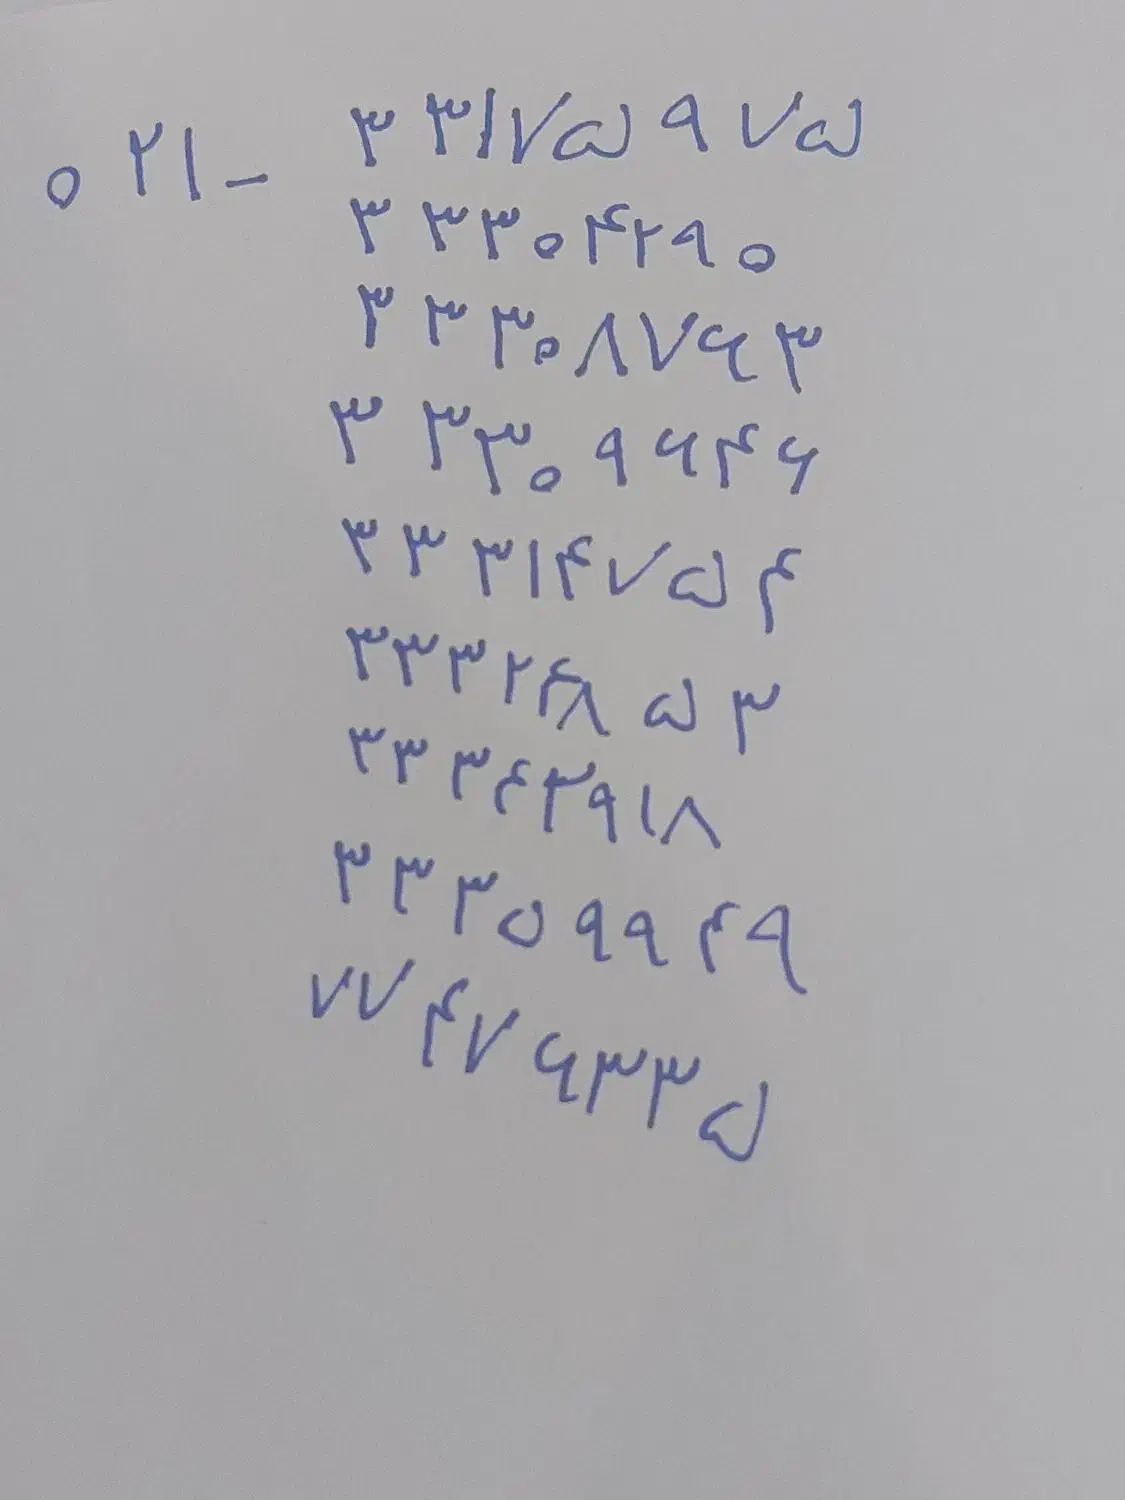 ۰۲۱- ۳۳۱۷۵۹۷۵
۳۳۳۰۴۲۹۰
۳۳۳۰۸۷۶۳
۳۳۳۰۹۶۴۶
۳۳۳۱۴۷۵۴
۳۳۳۲۴۸۵۳
۳۳۳۴۳۹۱۸
۳۳۳۵۹۹۴۹
۷۷۴۷۶۳۳۵